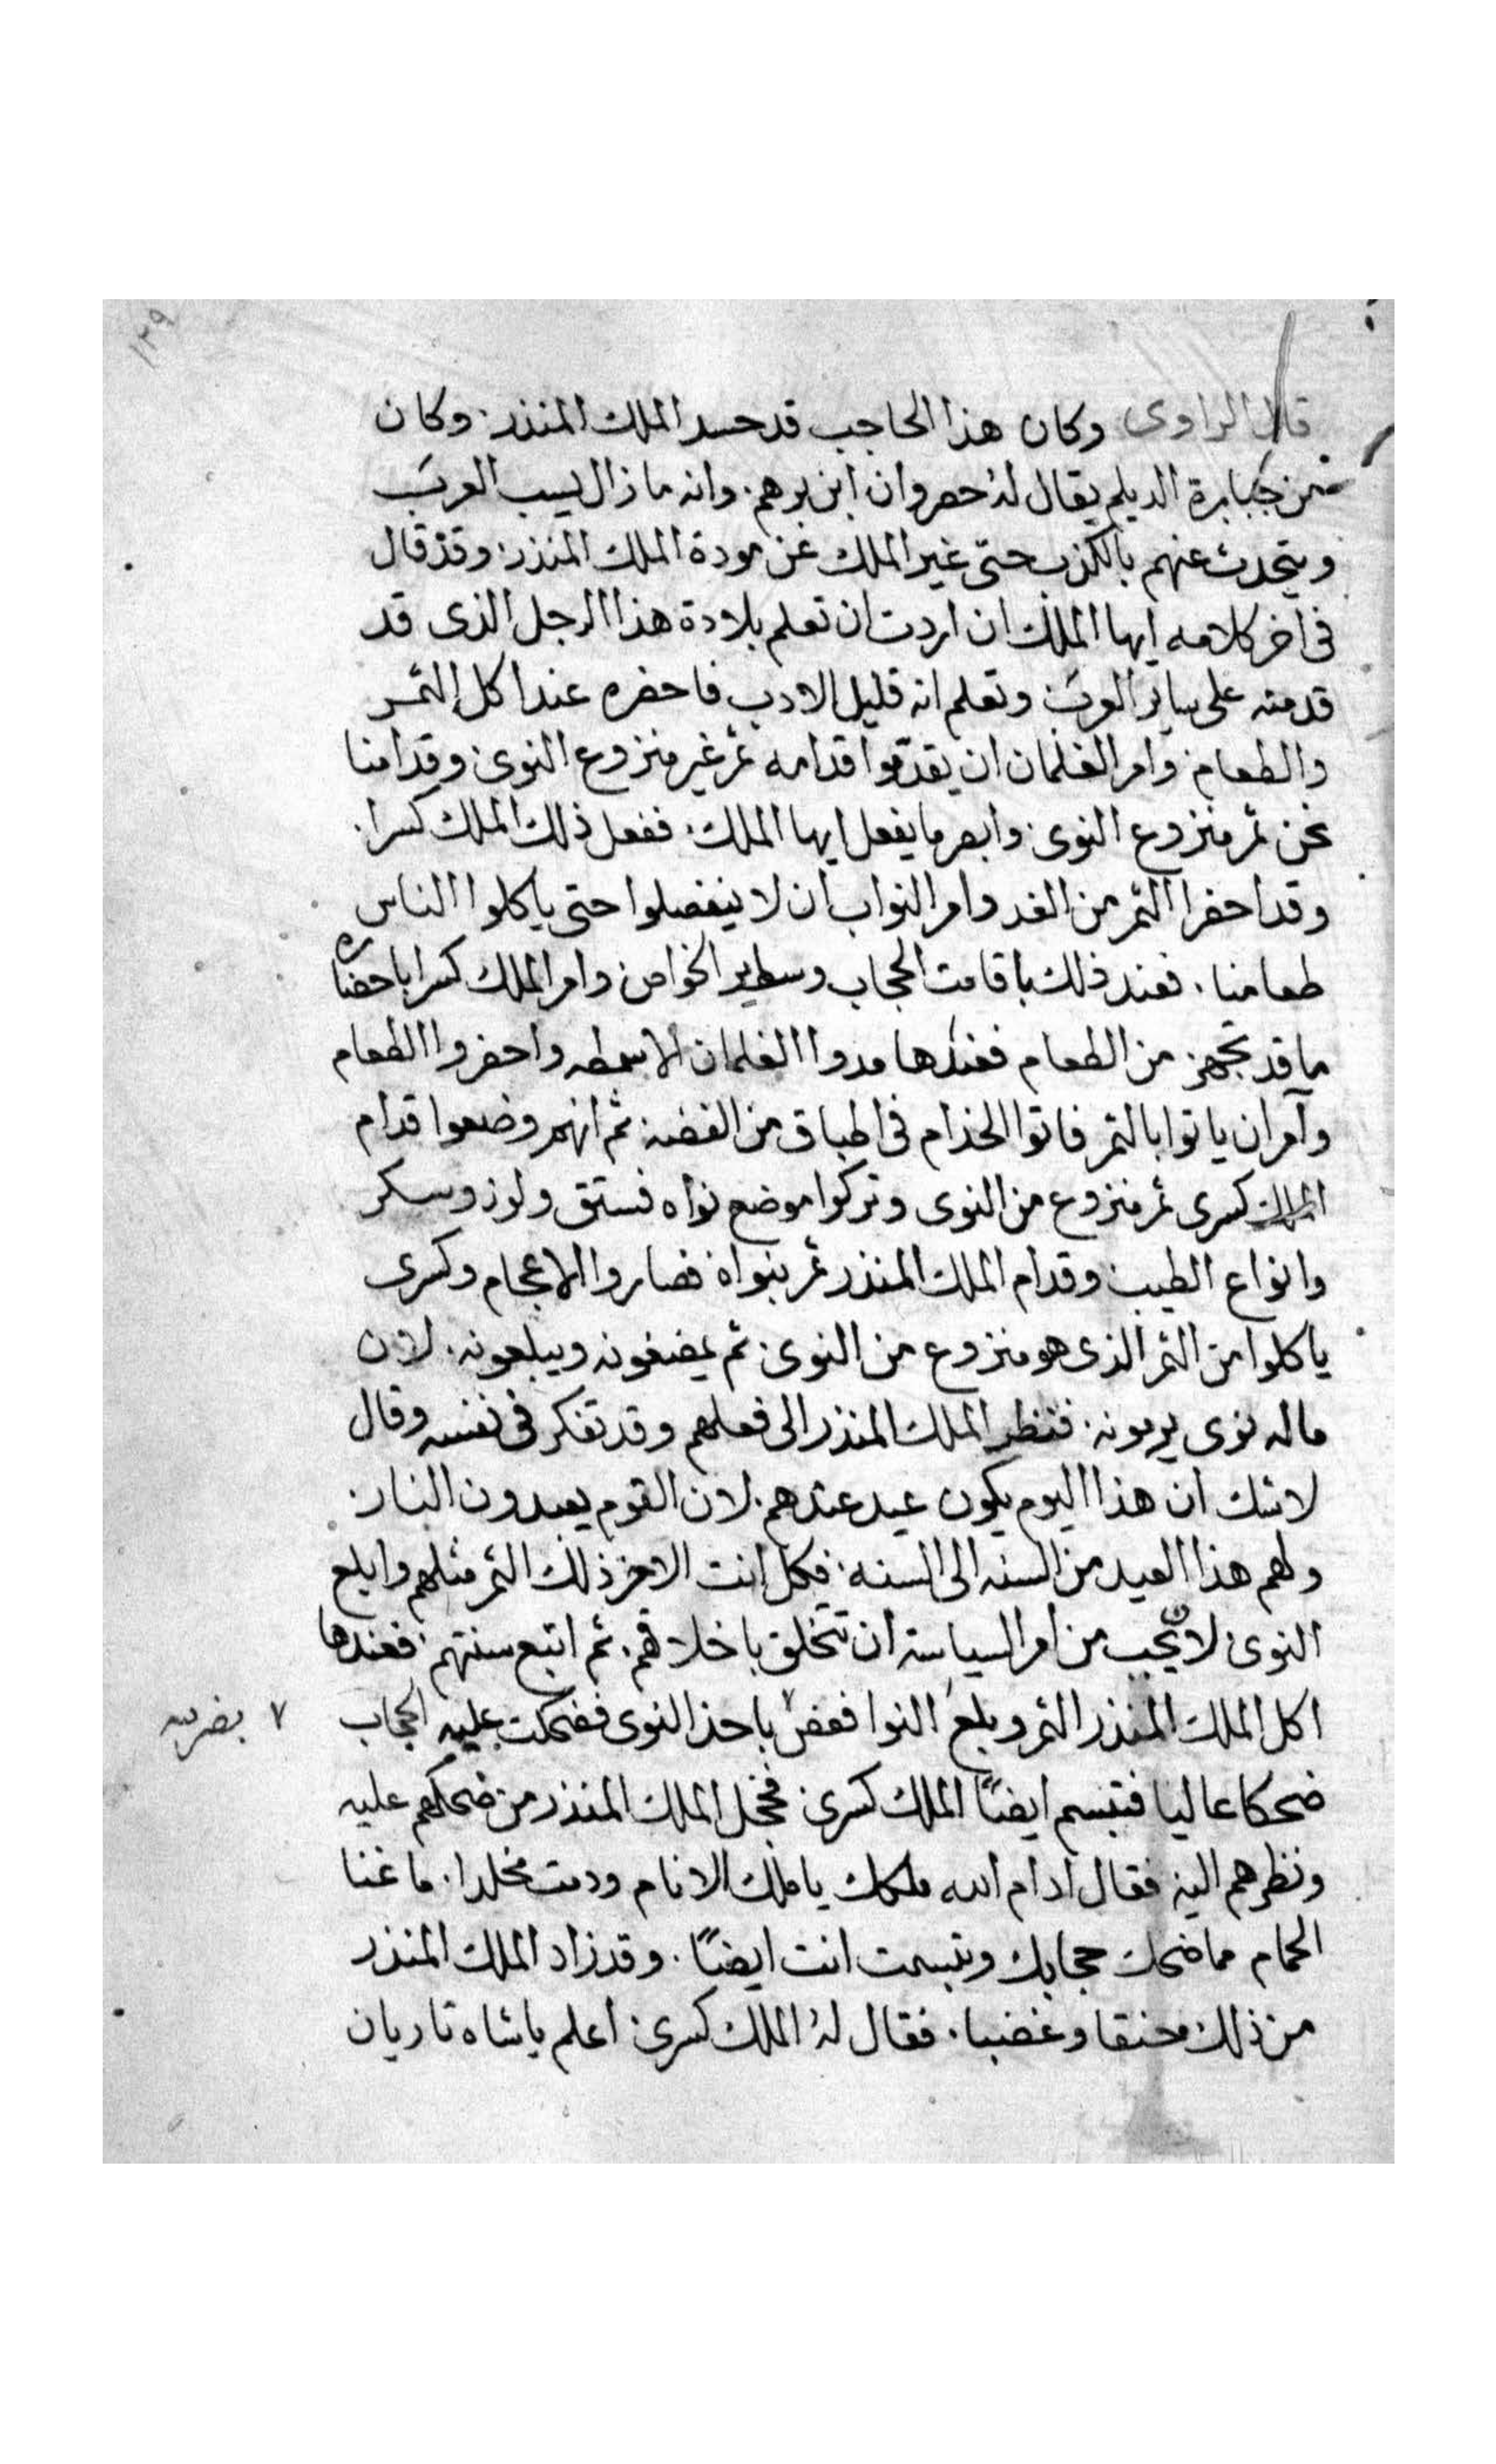 ١٣٩
قال الراوى وكان هذا الحاجب قد حسد الملك المنذر. وكان
من جبابرة الديلم يقال له خصروان ابن برهم. وانه ما زال يسب العرب
ويتحدث عنهم بالكذب حتى غير الملك عن مودة الملك المنذر. وقد قال
فى اخر كلامه ايها الملك ان اردت ان تعلم بلادة هذا الرجل الذى قد
قدمته على ساير العرب وتعلم انه قليل الادب فاحضره عند اكل التمر
والطعام وامر الغلمان ان يقدموا قدامه تمر غير منزوع النوى وقدامنا
نحن تمر منزوع النوى. وابصر ما يفعل ايها الملك. ففعل ذلك الملك كسرا.
وقد احضر التمر من الغد وامر النواب ان لا ينفصلوا حتى ياكلوا الناس
طعامنا. فعند ذلك باقامت الحجاب وامر الملك كسرا باحضاره
ما قد تجهز من الطعام فعندها مدوا الغلمان الاسمطه واحضروا الطعام
وآمر ان ياتوا بالتمر فاتوا الخدام فى اطباق من الفضه ثم انهم وضعوا قدام
الملك كسرى تمر منزوع من النوى وتركوا موضع نواه فستق ولوز وسكر
وانواع الطيب وقدام الملك المنذر تمر بنواه فصاروا الاعجام وكسرى
ياكلوا من التمر الذى هو منزوع من النوى. ثم يمضغونه ويبلعونه. لان
ماله نوى يرمونه. فنظر الملك المنذر الى فعلهم وقد تفكر فى نفسه وقال
لا شك ان هذا اليوم يكون عيد عندهم. لان القوم يعبدون النار.
ولهم هذا العيد من السنه الى السنه. فكل انت الاخر ذلك التمر مثلهم وابلع
النوى لان يجب من امر السياسة ان تتخلق باخلاقهم. ثم اتبع سنتهم. فعندها
اكل الملك المنذر التمر وبلع النوا فغص باحد النوى فضحكت عليه الحجاب
٧
ضحكا عاليا فتبسم ايضاً الملك كسرى فخجل الملك المنذر من ضحكهم عليه
ونظرهم اليه فقال ادام الله ملكك يا ملك الانام ودمت مخلدا. ما غنا
الحمام مما ضحك حجابك وتبسمت انت ايضاً. وقد زاد الملك المنذر
من ذلك محنقا وغضبا. فقال له الملك كسرى اعلم يا شاه تاريان